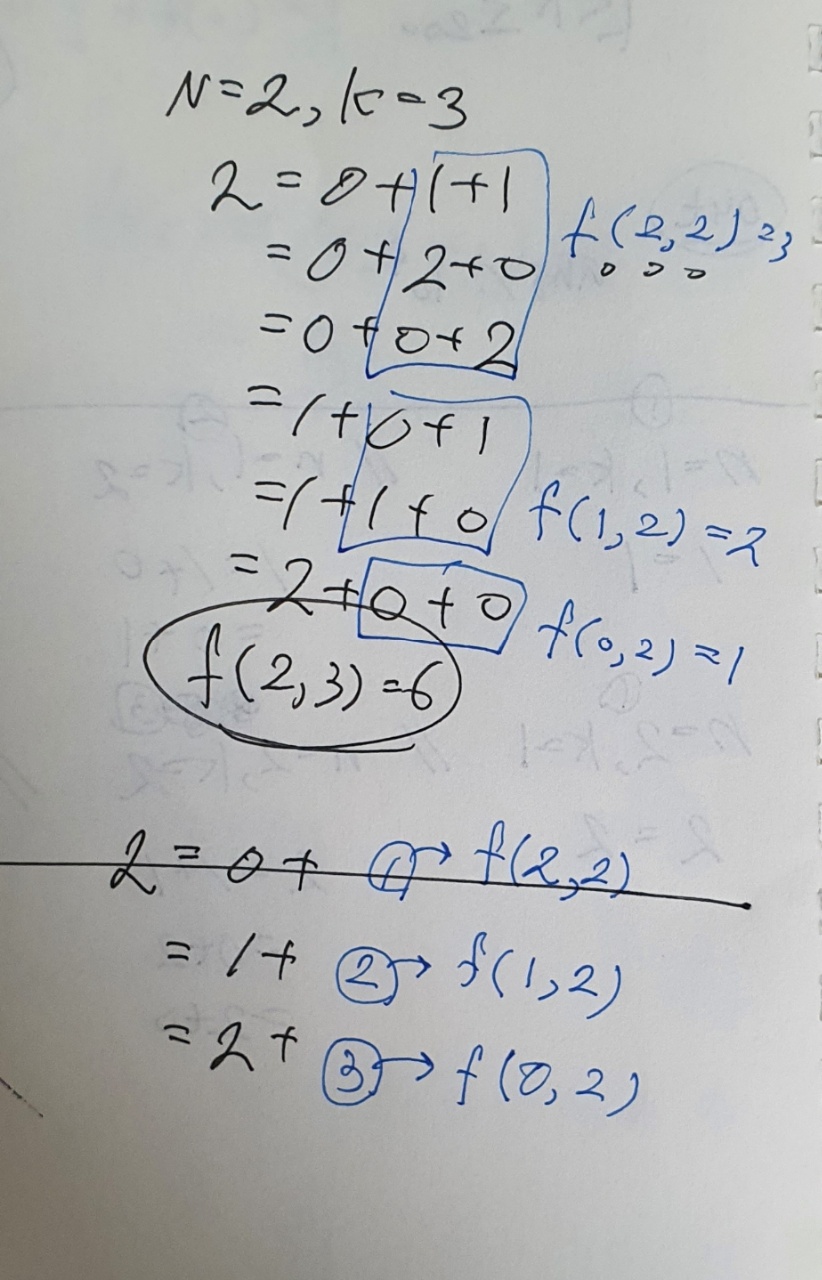 N=2, k=3
2 = 0+1+1
= 0+2+0 f(2,2)=3
= 0+0+2
= 1+0+1
= 1+1+0 f(1,2)=2
= 2+0+0 f(0,2)=1
f(2,3)=6
2 = 0+ ① → f(2,2)
= 1+ ② → f(1,2)
= 2+ ③ → f(0,2)